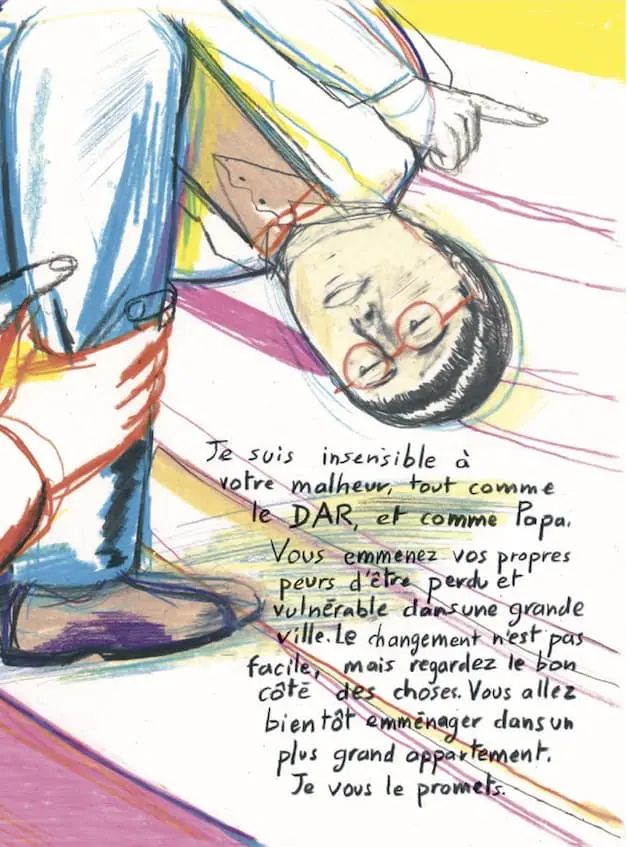 Je suis insensible à
votre malheur, tout comme
le DAR, et comme Papa.
Vous emmenez vos propres
peurs d'être perdu et
vulnérable dans une grande
ville. Le changement n'est pas
facile, mais regardez le bon
côté des choses. Vous allez
bientôt emménager dans un
plus grand appartement.
Je vous le promets.